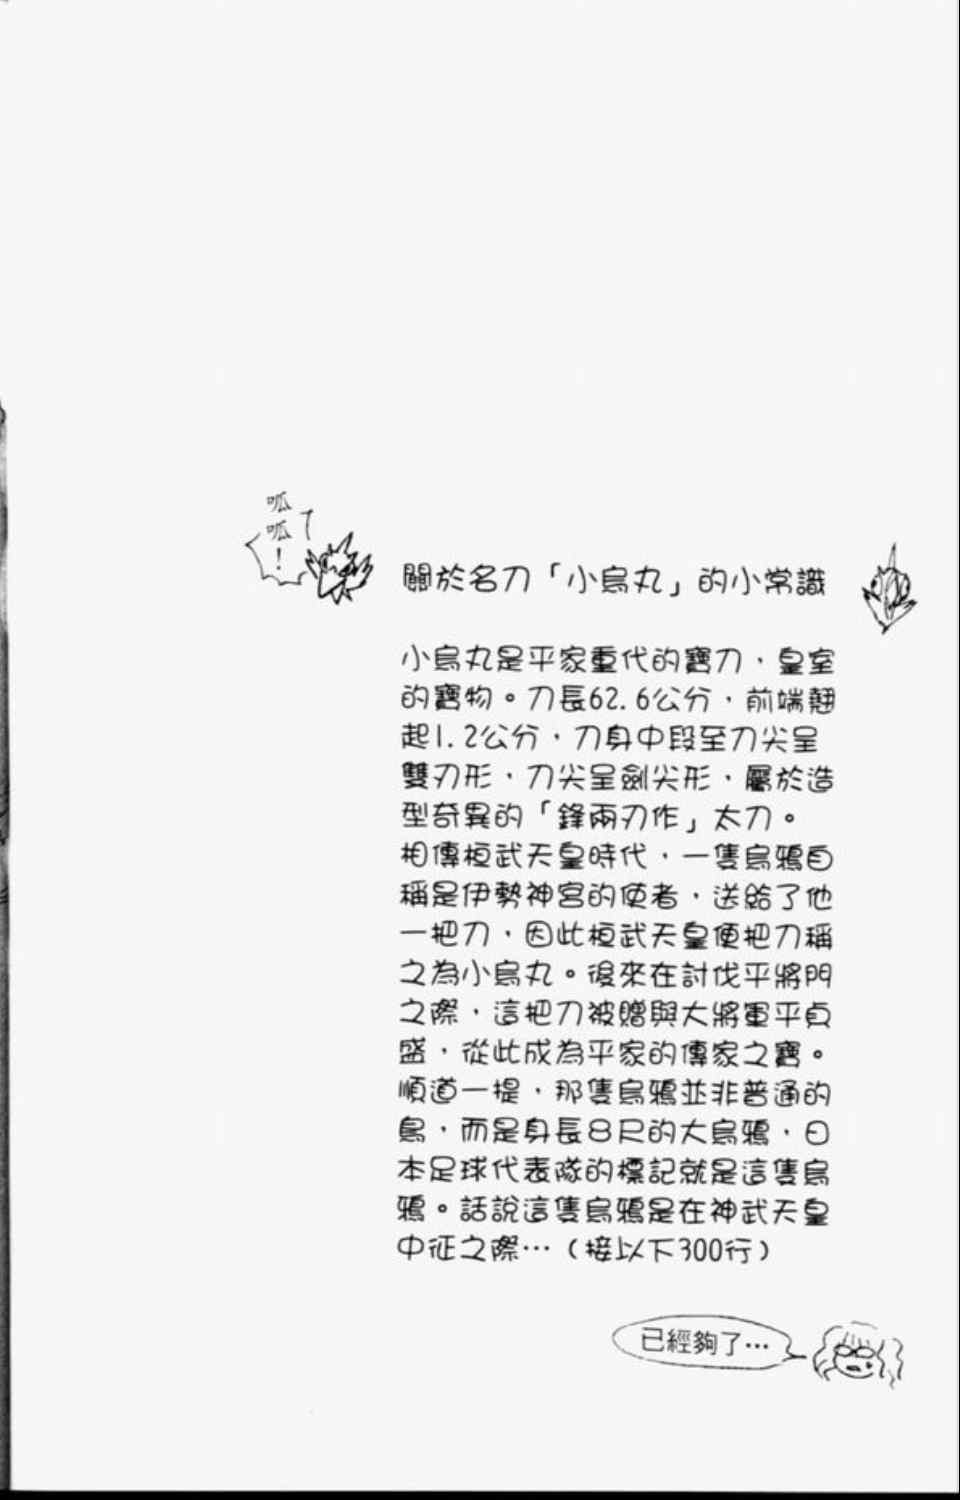 呱
呱
！
關於名刀「小烏丸」的小常識
小烏丸是平家重代的寶刀，皇室
的寶物。刀長62.6公分，前端翹
起1.2公分，刀身中段至刀尖呈
雙刃形，刀尖呈劍尖形，屬於造
型奇異的「鋒兩刃作」太刀。
相傳桓武天皇時代，一隻烏鴉自
稱是伊勢神宮的使者，送給了他
一把刀，因此桓武天皇便把刀稱
之為小烏丸。後來在討伐平將門
之際，這把刀被贈與大將軍平貞
盛，從此成為平家的傳家之寶。
順道一提，那隻烏鴉並非普通的
鳥，而是身長8尺的大烏鴉，日
本足球代表隊的標記就是這隻烏
鴉。話說這隻烏鴉是在神武天皇
中征之際…（接以下300行）
已經夠了…